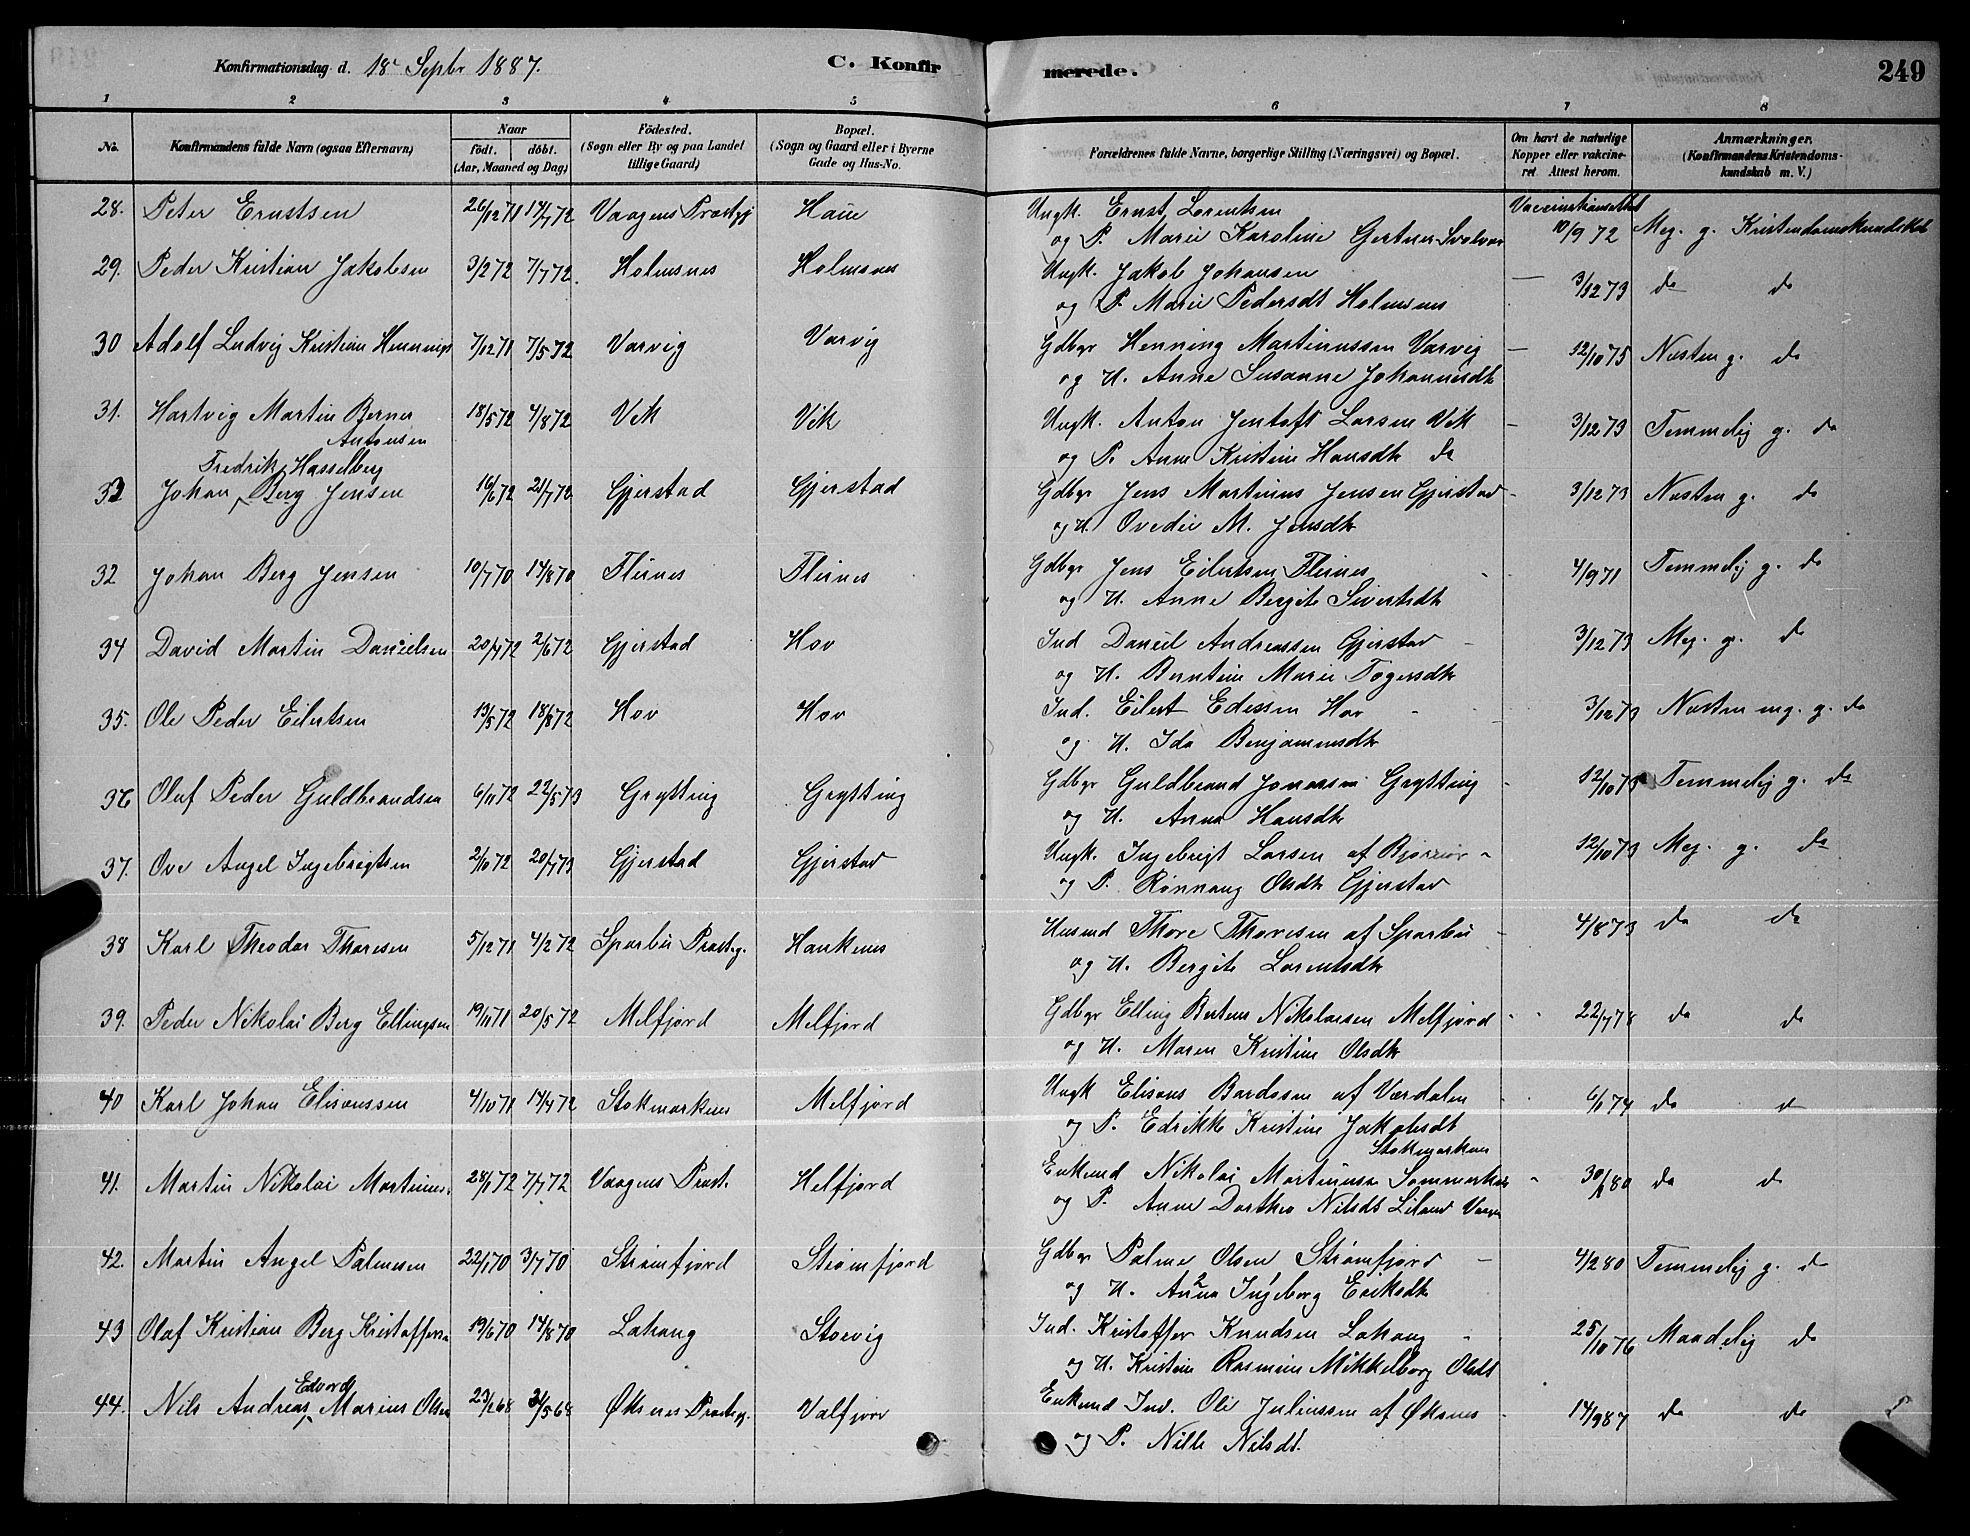 Konfirmationsdag d. 18 Septbr 1887.
C. Konfir
merede.
249
1 2 3 4 5 6 7 8
No.
Konfirmandens fulde Navn (ogsaa Efternavn)
Naar
födt. döbt.
(Aar, Maaned og Dag)
Födested.
(Sogn eller By og paa Landet
tillige Gaard)
Bopæl.
(Sogn og Gaard eller i Byerne
Gade og Hus-No.
Forældrenes fulde Navne, borgerlige Stilling (Næringsvei) og Bopæl.
Om havt de naturlige
Kopper eller vakcine-
ret. Attest herom.
Anmærkninger.
(Konfirmandens Kristendoms-
kundskab m. V.)
28. Peter Ernstsen 26/12 71 14/7 72 Vaagens Præstgj Ungk. Ernst Lorentsen
og P. Marie Karoline Gertner Svolvær 10/9 72 Meg. g. Kristendomskundskab
29. Peder Kristian Jakobsen 3/2 72 7/7 72. Holmsnes Holmsnes Ungk. Jakob Johansen — 3/12 73 do do
og P. Marie Pedersdt Holmsnes
30 Adolf Ludvig Kristian Hennings 7/12 71 7/5 72 Varvig Varvig Gdbgr Henning Martinussen Varvig — 12/10 75 Næsten g. do
og H. Anne Susanne Johannesdtr
31. Hartvig Martin Berner Antonsen 18/5 72 4/8 72 Vik Vik Ungk. Anton Jentoft Larsen Vik - 3/12 73 Temmelig g. do
og P. Anne Kristine Hansdtr do
Fredrik Hasselberg
Johan Berg Jensen 16/6 72 21/7 72 Gjerstad Gjerstad Gdbgr Jens Martinus Jensen Gjerstad - 3/12 73 Næsten g. do
og H. Ovedie M. Jensdtr
32 Johan Berg Jensen 10/7 70 14/8 70 Flesnes Flesnes Gdbgr Jens Eilertsen Flesnes - 4/9 71 Temmelig g. do
og H. Anne Bergite Sivertsdtr
34 David Martin Danielsen 20/4 72 2/6 72 Gjerstad Hov Ind Daniel Andreassen Gjerstad - 3/12 73 Meg. g. do
og H. Berntine Marie Togersdtr
35. Ole Peder Eilertsen 13/5 72 18/8 72 Hov Hov Ind. Eilert Edissen Hov - 3/12 73 Næsten meg. g. do
og H. Ida Benjaminsdtr
36 Oluf Peder Guldbrandsen 6/11 72 22/5 73 Grytting Grytting Gdbgr Guldbrand Jonassen Grytting - 12/10 75 Temmelig g. do
og H. Anna Hansdtr
37. Ove Angel Ingebrigtsen 2/10 72 20/4 73 Gjerstad Gjerstad Ungk. Ingebrigt Larsen af - 12/10 73 Meg. g. do
og P. Rönnaug Olsdtr Gjerstad
38 Karl Theodor Thoresen 5/12 71 4/2 72 Sparbu Præsteg. Haukenes Husmd Thore Thoresen af Sparbu - 4/8 73 do do
og H. Bergite Lorentsdtr
39. Peder Nikolai Berg Ellingsen 19/11 71 20/5 72 Melfjord Melfjord Gdbgr Elling Bertens Nikolaisen Melfjord - 22/7 78 do do
og H. Maren Kristine Olsdtr
40 Karl Johan Elisenssen 4/10 71 14/4 72 Stokmarknes Melfjord Ungk Elisens Bardosen af Værdalen - 6/1 74 do do
og P. Edrikke Kristine Jakobsdt
Stokmarknes
41. Martin Nikolai Martinus. 28/1 72 7/7 72 Vaagens Præst. Melfjord Enkemd Nikolai Martinussen - 30/1 80 do do
og P. Anne Dorthea Nilsdt
42. Martin Angel Palmesen 22/1 70 3/7 70 Strömfjord Strömfjord Gdbgr Palme Olsen Strömfjord — 4/2 80 Temmelig g. do
og H. Anna Ingeborg Eriksdtr
43 Olaf Kristian Berg Kristoffersen 19/6 70 14/8 70 Lahaug Storvig Ind. Kristoffer Knudsen Lahaug - 25/10 76 Maadelig do
og H. Kristine Rasmine Mikkelborg Olsdt
44. Nils Andreas Edvard Marius Olsen 23/2 68 31/5 68 Øksnes Præstegj. Valfjord Enkemd Ind. Ole Juliussen af Øksnes - 14/9 87 do do
og P. Nille Nilsdt.